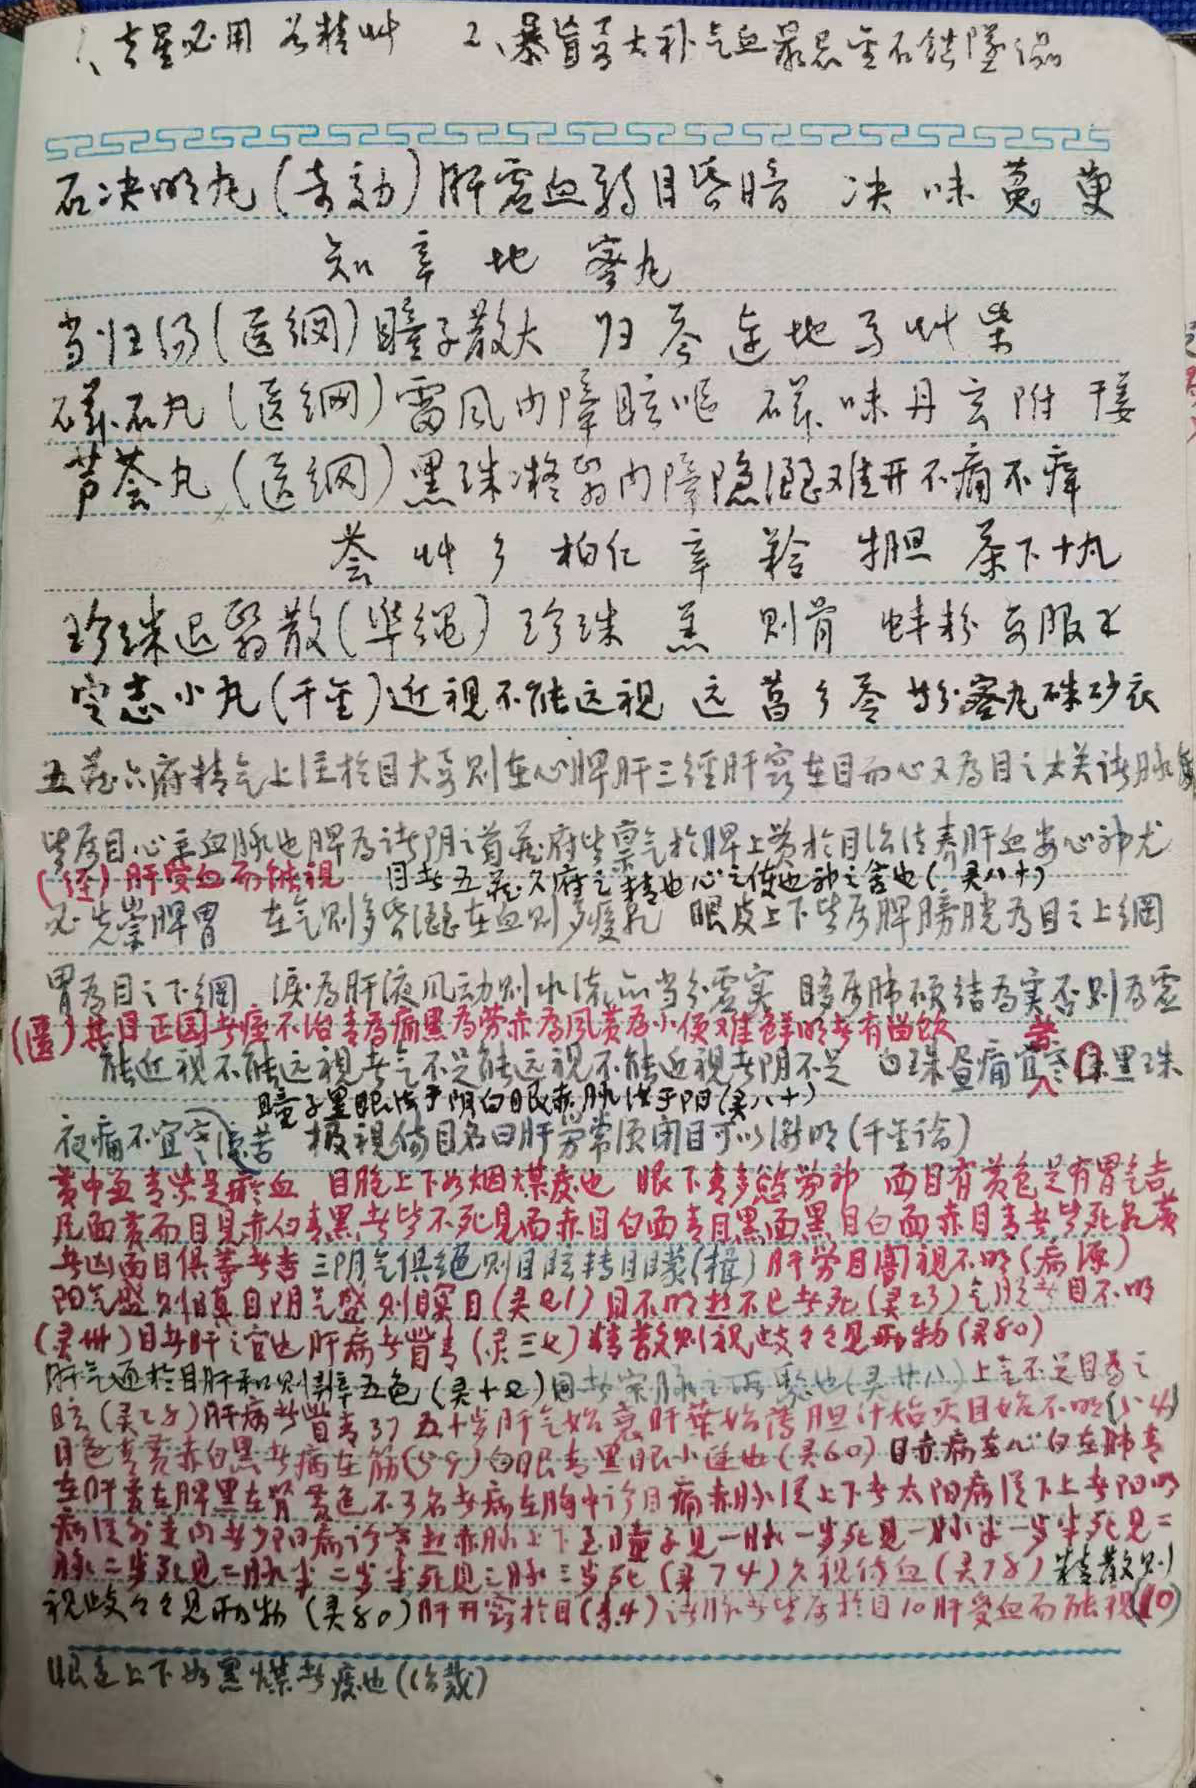 1、去星必用谷精艸 2、暴盲需大补气血最忌金石镇墜之品
石决明丸(奇効)肝虚血弱目昏暗 决 味 菟 萸
知 辛 地 蜜丸
当归汤(医綱)瞳子散大 归 芩 连 地 芍 艸 柴
磁石丸(医綱)雷风内障眩呕 磁 味 丹 玄 附 干姜
芦荟丸(医綱)黑珠凝翳内障隐涩难开不痛不痒
荟 艸 参 柏仁 辛 羚 牛胆 茶下十丸
珍珠退翳散(準绳) 珍珠 羔 则骨 蚌粉
定志小丸(千金)近视不能远视 远 菖 参 苓 蜜丸硃砂衣
五蔵六府精气上注於目大要则在心脾肝三經肝窍在目而心又為目之大关诸脉者
皆属目心主血脉也脾為诸阴之首蔵府皆禀气於脾上贯於目治法养肝血安心神尤
(经)肝受血而能视 目者五蔵六府之精也心之使也神之舍也(灵八十)
必先崇脾胃 在气则多昏涩在血则多瘦乳 眼皮上下皆属脾膀胱為目之上綱
胃為目之下綱 淚為肝液风动则水流亦当分虚实 眵属肺硬结為实否则為虚
(匱)其目正圆者痙不治青為痛黑為劳赤為风黄為小便难鲜明者有留饮
能近视不能远视者气不足能远视不能近视者阴不足 白珠昼痛宜苦寒黑珠
瞳子黑眼法于阴白眼赤脉法于阳(灵八十)
夜痛不宜寒凉苦 极视伤目名曰肝劳常须闭目可以渐明(千金論)
黄中并青紫是瘀血 目胞上下如烟煤痰也 眼下青多慾劳神 面目有黄色是有胃气吉
凡面黄而目見赤白青黑者皆不死見面赤目白面青目黑面黑目白面赤目青者皆死
者凶面目俱等者吉 三阴气俱绝则目眩转目矇(楫) 肝劳目闇视不明(病源)
阳气盛则瞋目阴气盛则瞑目(灵21)目不明热不已者死(灵23)气脱者目不明
(灵卅)目者肝之官也肝病者眥青(灵三七)精散则视歧々々見两物(灵80)
肝气通於目肝和则辨五色(灵十七)目者宗脉之所聚也(灵廿八)上气不足目為之
眩(灵28)肝病者眥青37五十岁肝气始衰肝葉始薄胆汁始灭目始不明(54)
目色青黄赤白黑者病在筋(59)白眼青黑眼小逆也(灵60)目赤病在心白在肺青
在肝黄在脾黑在肾黄色不可名者病在胸中诊目痛赤脉從上下者太阳病從下上者阳明
病從外走内者少阳病诊寒热赤脉上下至瞳子見一脉一岁死見一脉半一岁半死見二
脉二岁死見二脉半二岁半死見三脉三岁死(灵74)久视伤血(灵78)精散则
视歧々々見两物(灵80)肝开窍於目(素4)诸脉者皆属於目10肝受血而能视(10)
眼包上下如黑煤者痰也(治裁)